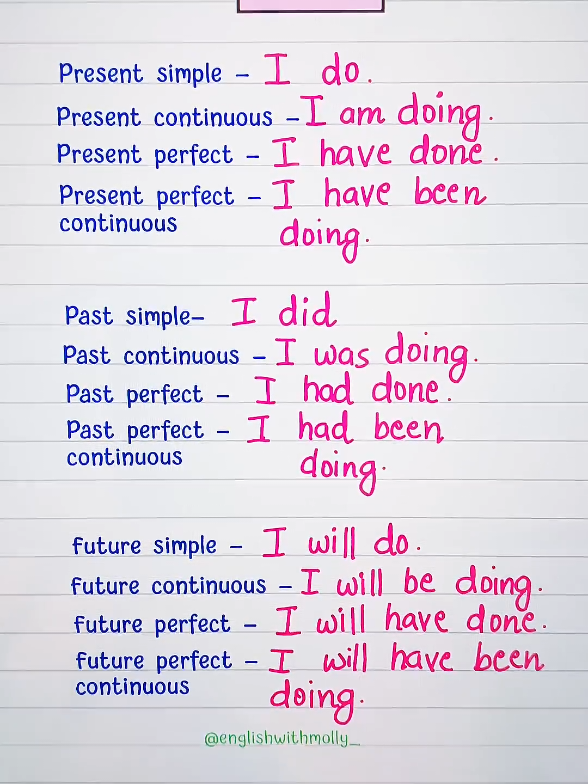 Present simple - I do.
Present continuous - I am doing.
Present perfect - I have done.
Present perfect - I have been
continuous doing.
Past simple- I did
Past continuous - I was doing.
Past perfect - I had done.
Past perfect - I had been
continuous doing.
future simple - I will do.
future continuous - I will be doing.
future perfect - I will have done.
future perfect - I will have been
continuous doing.
@englishwithmolly_